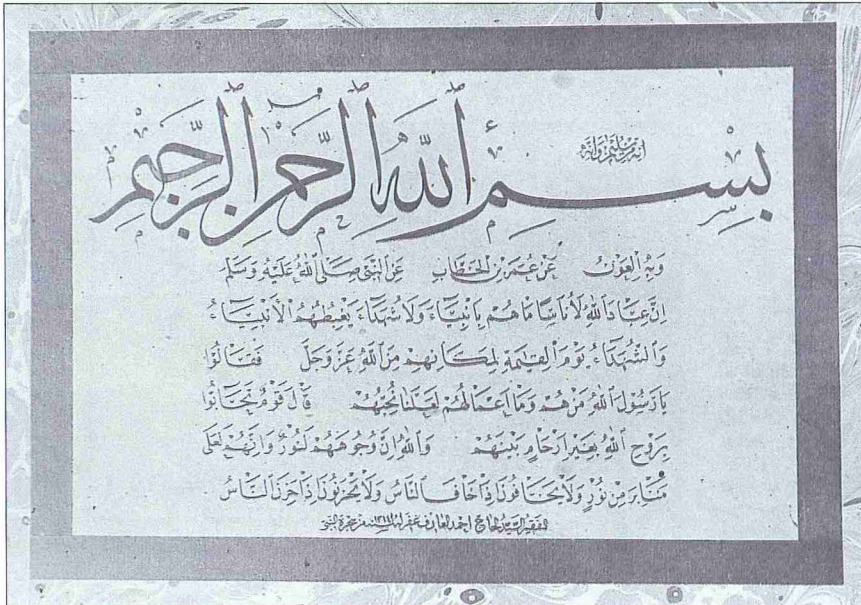 إنه من سليمان وإنه
بسم الله الرحمن الرحيم
وبه العون عن عمر بن الخطاب عن النبي صلى الله عليه وسلم
ان من عباد الله لأناسا ما هم بأنبياء ولا شهداء يغبطهم الأنبياء
والشهداء يوم القيمة لمكانهم من الله عز وجل فقالوا
يا رسول الله من هم وما اعمالهم لعلنا نحبهم قال قوم تحابوا
بروح الله بغير ارحام بينهم والله ان وجوههم لنور وانهم لعلى
منابر من نور ولا يخافون اذا خاف الناس ولا يحزنون اذا حزن الناس
الفقير السيد الحاج احمد العارف غفر له من هجرة النبي